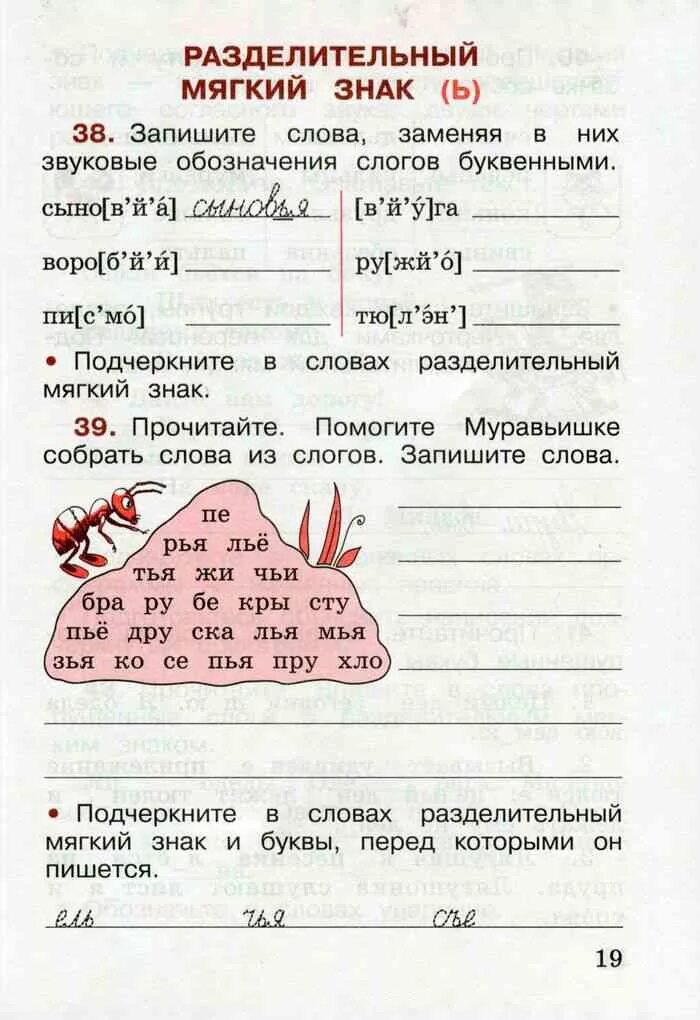 РАЗДЕЛИТЕЛЬНЫЙ
МЯГКИЙ ЗНАК (Ь)
38. Запишите слова, заменяя в них
звуковые обозначения слогов буквенными.
сыно[в'й'а́] сыновья [в'й'у́]га
воро[б'й'и́] ру[жй'о́]
пи[с'мо́] тю[л'э́н']
• Подчеркните в словах разделительный
мягкий знак.
39. Прочитайте. Помогите Муравьишке
собрать слова из слогов. Запишите слова.
пе
рья льё
тья жи чьи
бра ру бе кры сту
пьё дру ска лья мья
зья ко се пья пру хло
• Подчеркните в словах разделительный
мягкий знак и буквы, перед которыми он
пишется.
ель чья съе
19